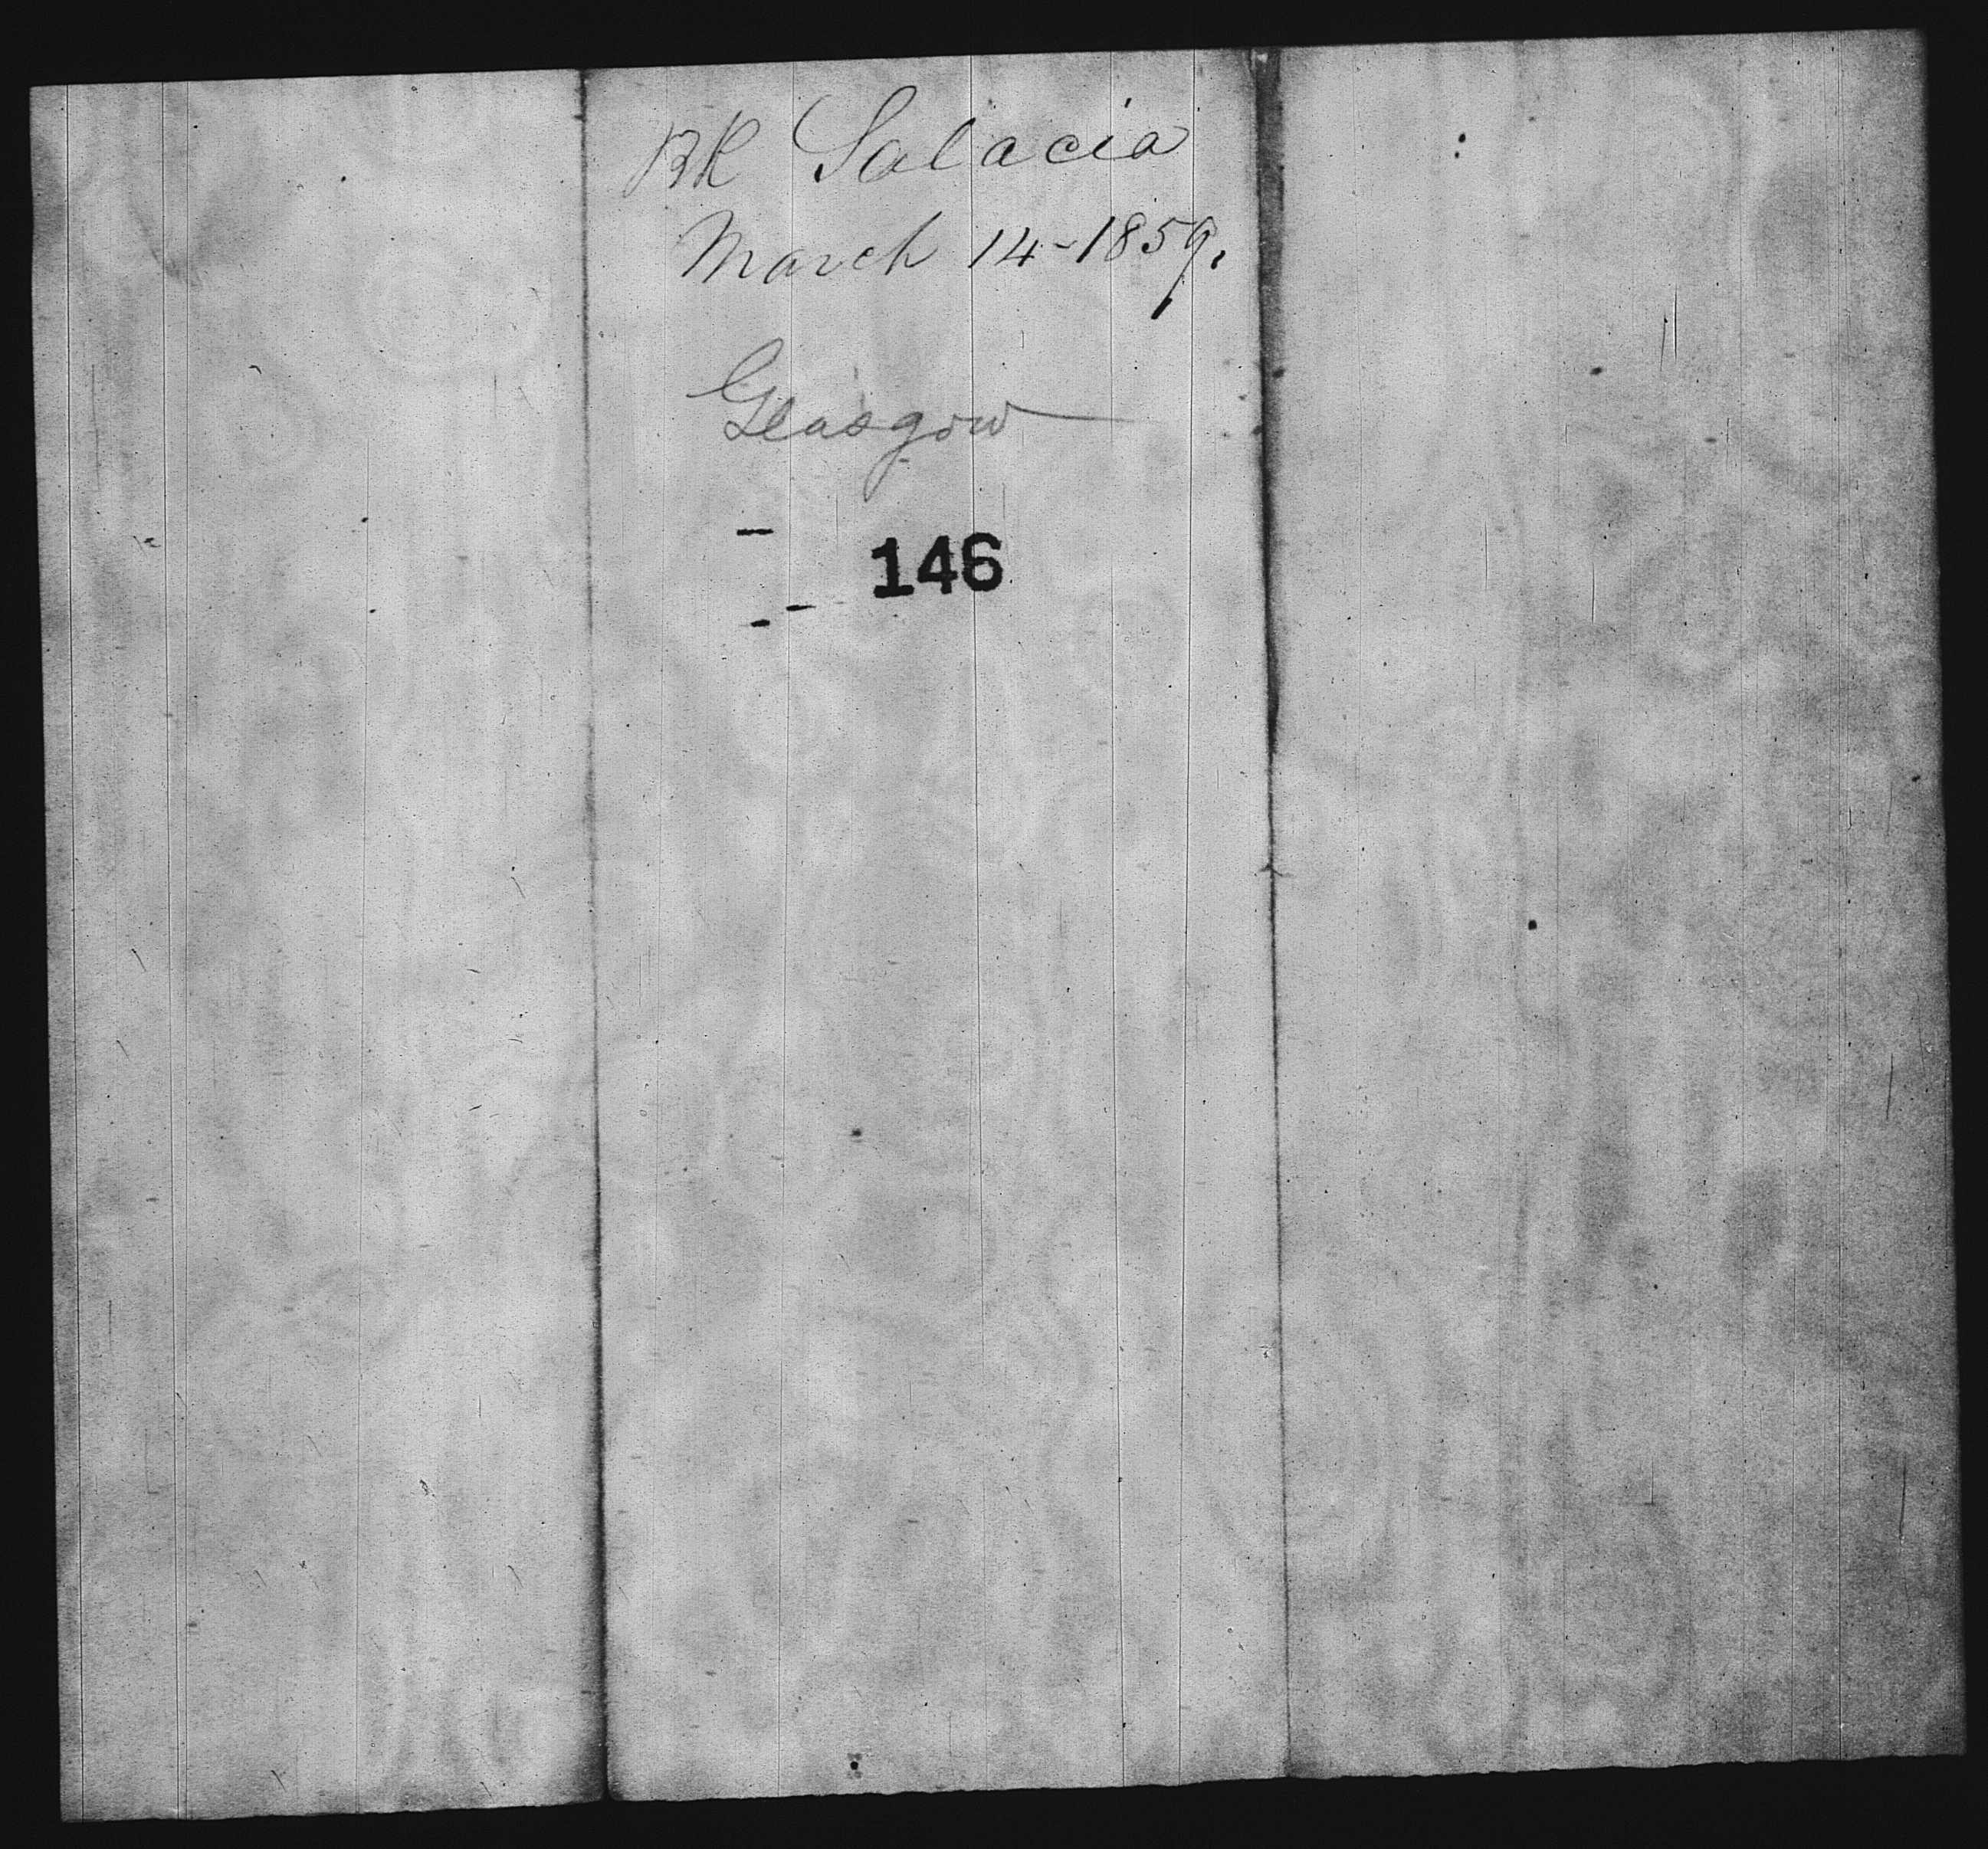 BK Salacia
March 14-1859.
Glasgow
146